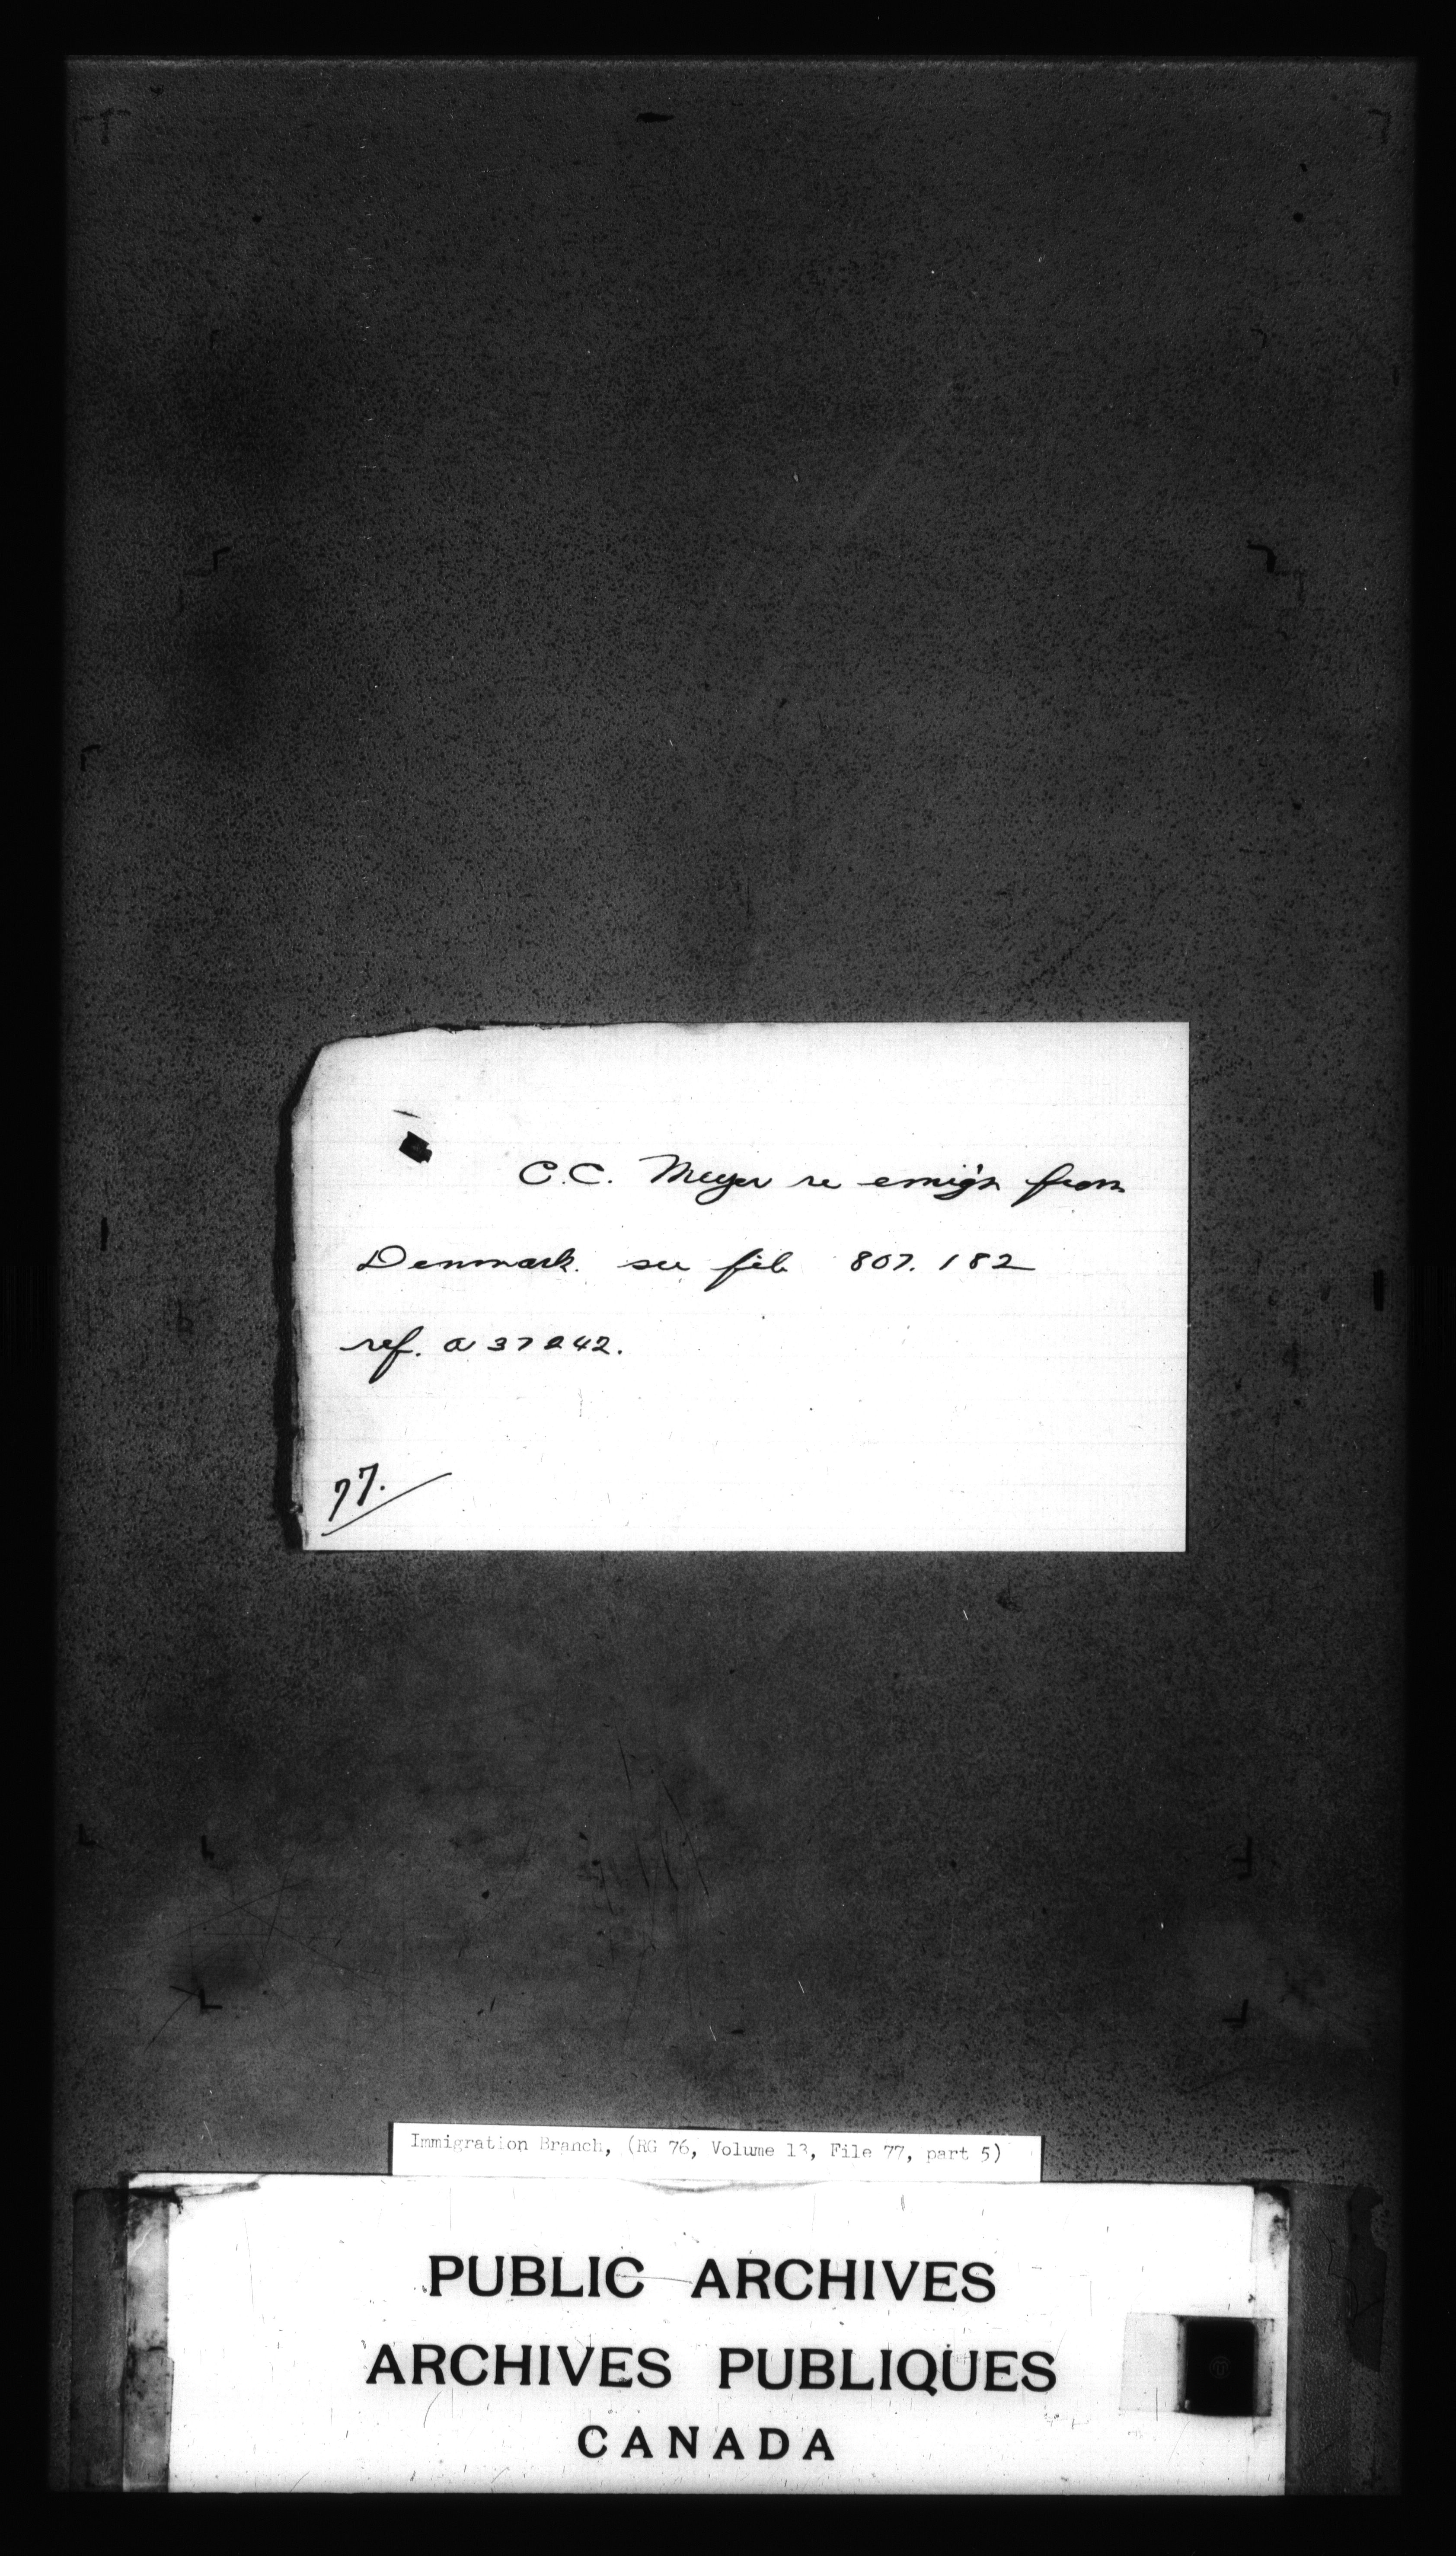 C.C. Meyer re emig'n from
Denmark. see file 807.182
ref. a 37242.
77.
Immigration Branch, (RG 76, Volume 13, File 77, part 5)
PUBLIC ARCHIVES
ARCHIVES PUBLIQUES
CANADA